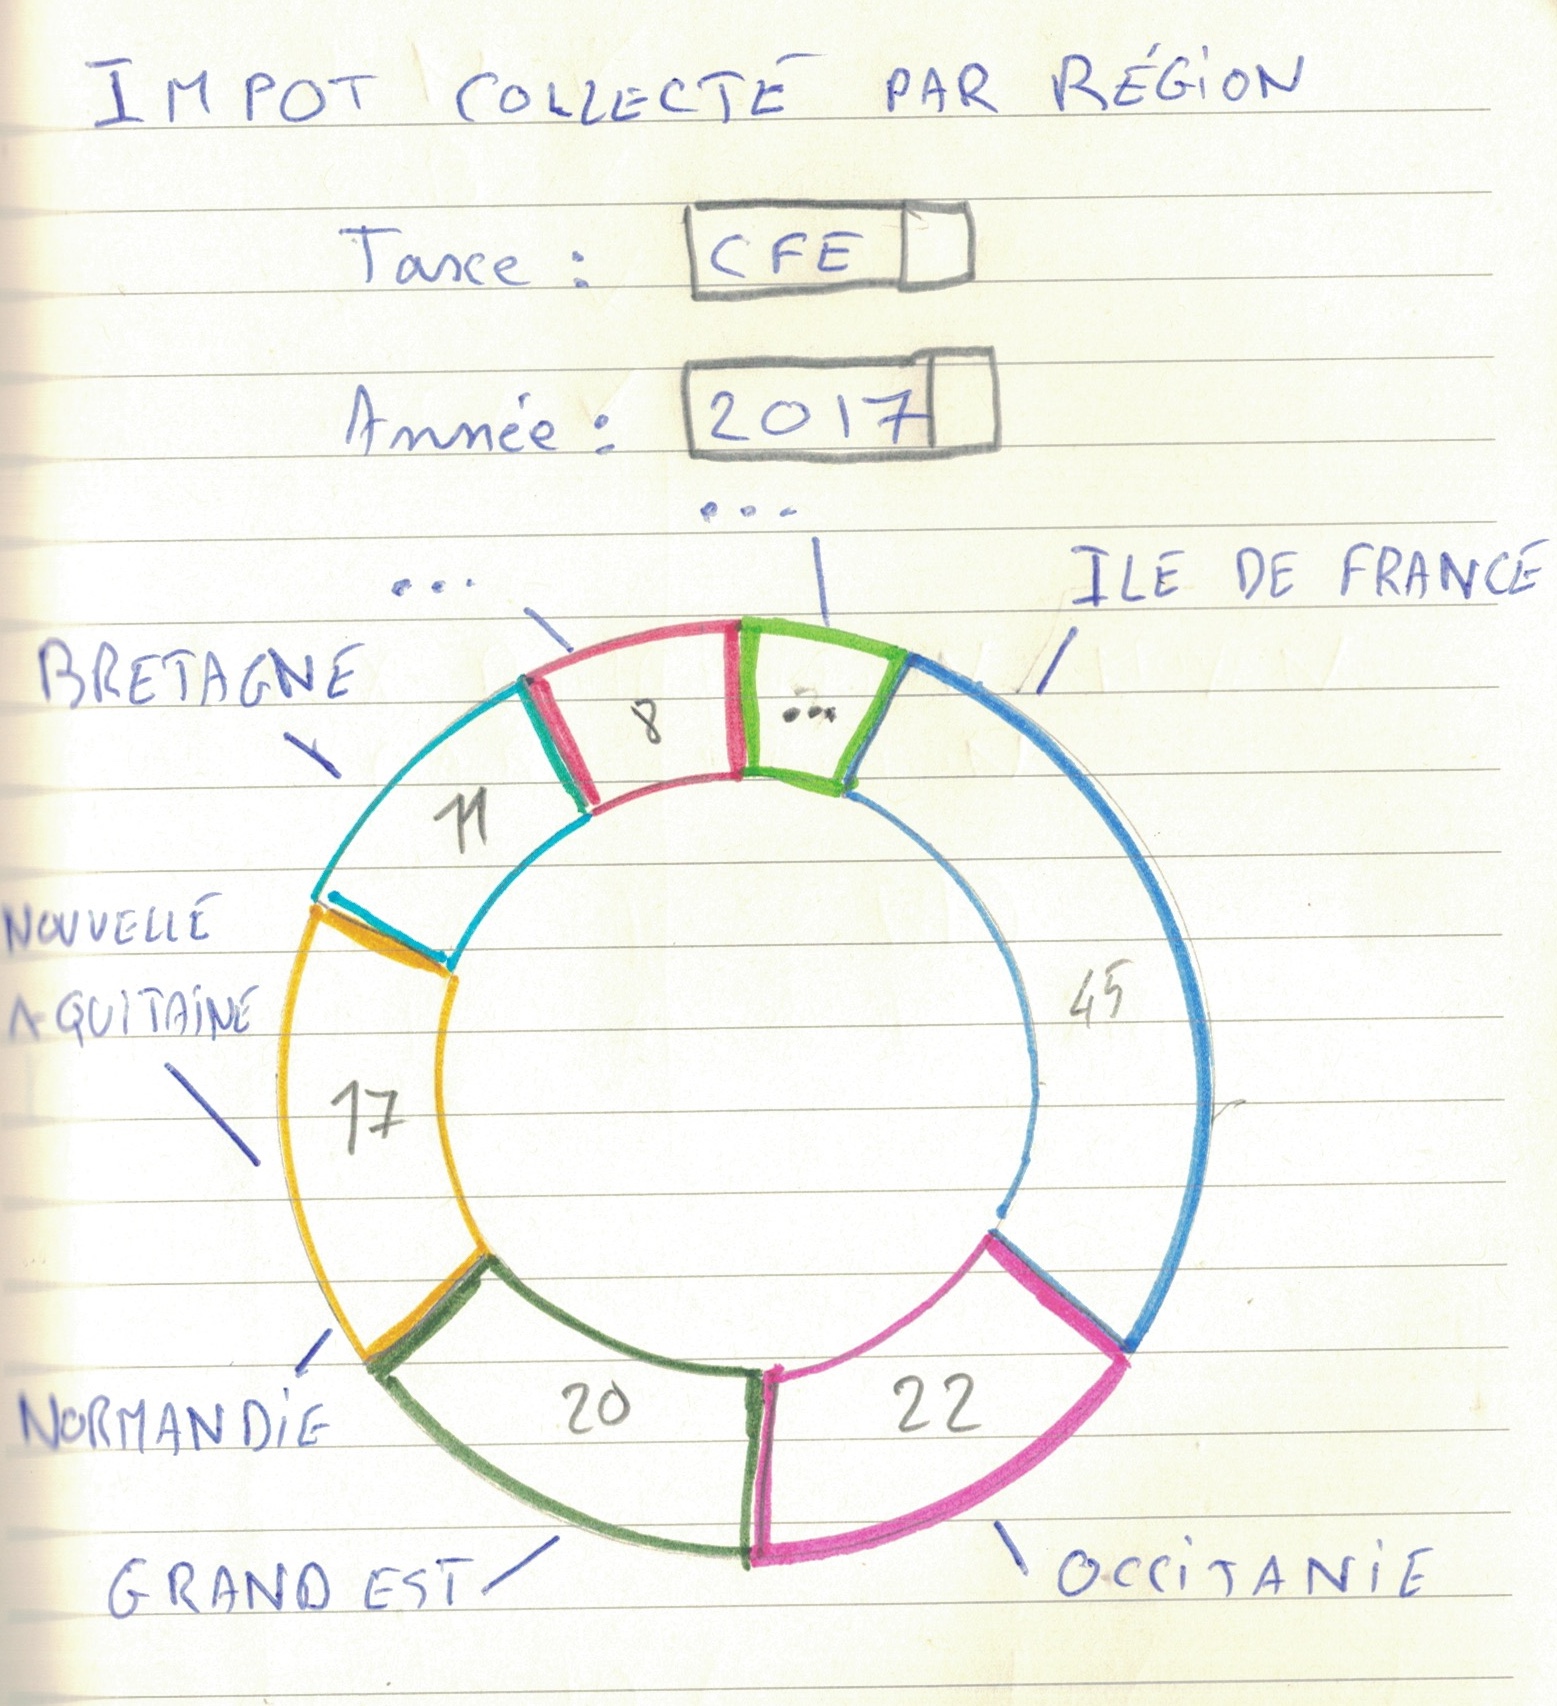 IMPOT COLLECTÉ PAR RÉGION
Taxe : CFE
Année : 2017
...
...
ILE DE FRANCE
BRETAGNE
8
...
11
NOUVELLE
AQUITAINE
45
17
20
22
NORMANDIE
GRAND EST
OCCITANIE